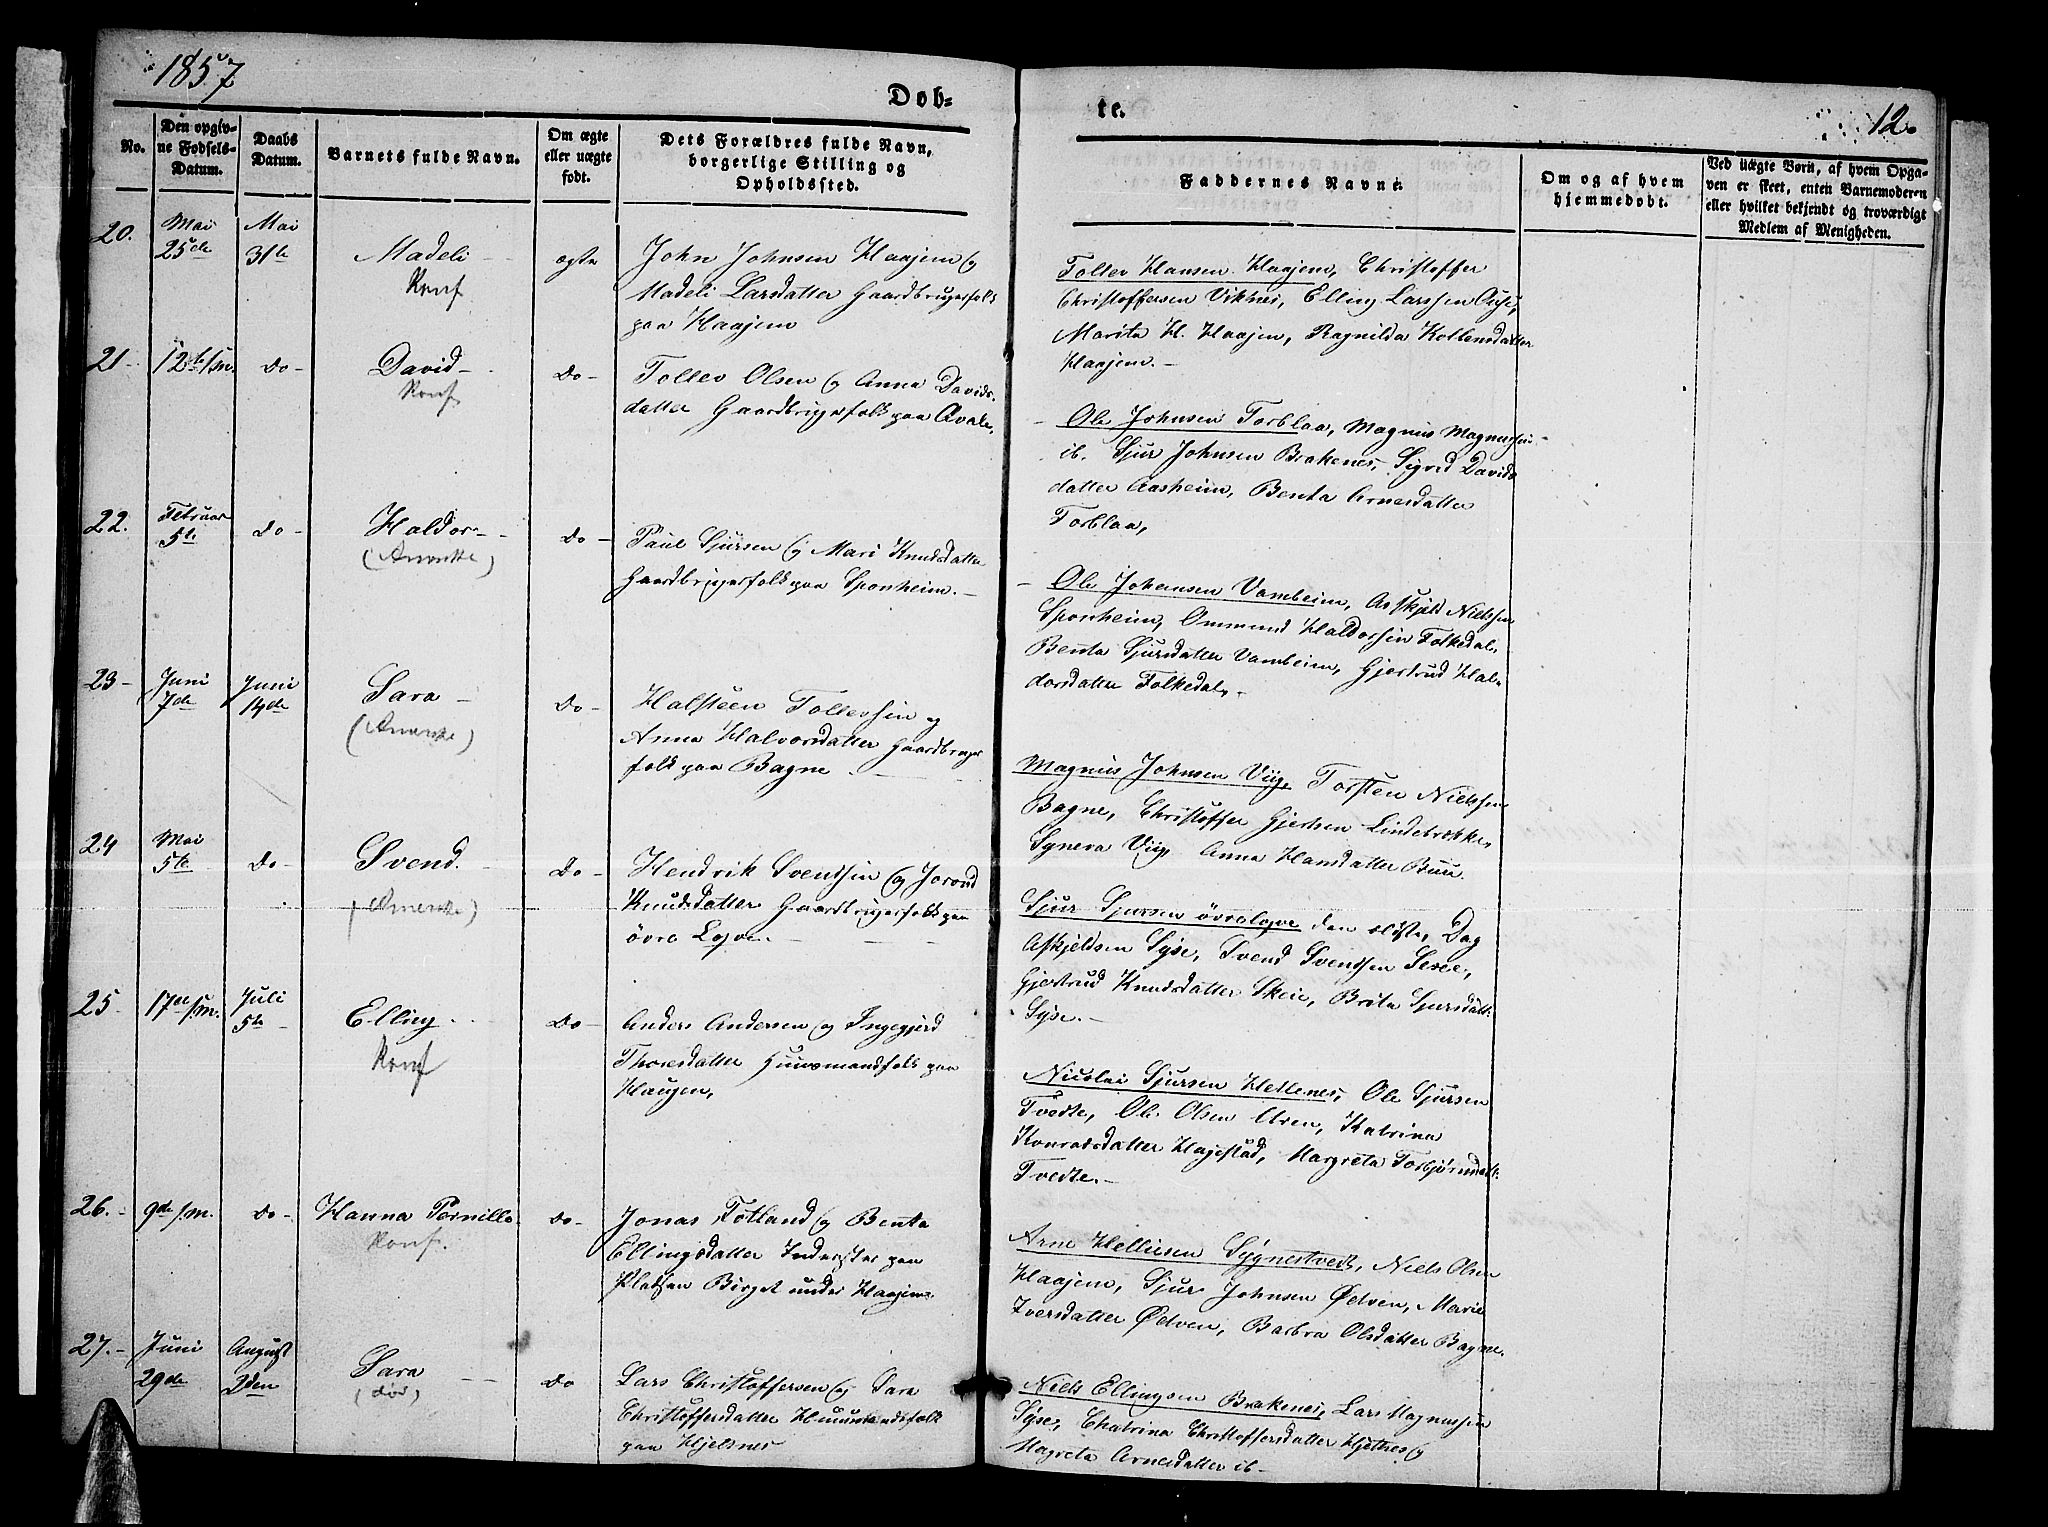 1857
Døb-
te.
12.
No.
Den opgiv-
ne Fødsels-
Datum.
Daabs
Datum.
Barnets fulde Navn.
Om ægte
eller uægte
født.
Dets Forældres fulde Navn,
borgerlige Stilling og
Opholdssted.
Faddernes Navne.
Om og af hvem
hjemmedøbt.
Ved uægte Børn, af hvem Opga-
ven er skeet, enten Barnemoderen
eller hvilket bekjendt og troværdigt
Medlem af Menigheden.
20.
Mai
25de
Mai
31te
Madeli
Konf
ægte
John Johnsen Haajem og
Madeli Larsdatter Gaardbrugerfolk
paa Haajem
Tollev Hansen Haajem, Christoffer
Christoffersen Viknes, Elling Larssen
Marita H. Haajem, Ragnilda Kolbensdatter
Haajem.-
21-
12te s.m.
Do-
David-
Konf
Do-
Tollev Olsen og Anna Davids-
datter Gaardbrugerfolk paa Avale.
Ole Johnsen Torblaa, Magnus Magnussen
ib. Sjur Johnsen Brakenes, Sigrid Davids
datter Aasheim, Benta Arnesdatter
Torblaa,
22.
Februar
5te
Do-
Haldor-
Do-
Paul Sjursen og Mari Knudsdatter
Gaardbrugerfolk paa Sponheim.-
Ole Johansen Vambeim, Asskjeld Nielssen
Sponheim, Ommund Haldorsen Folkedal,
Benta Sjursdatter Vambeim, Gjertrud Hal-
dorsdatter Folkedal.-
23-
Juni
7de
Juni
14de
Sara-
Do-
Halsteen Tollevsen og
Anna Halvorsdatter Gaardbruger
folk paa Bagne
Magnus Johnsen Viig, Torsten Nielssen
Bagne, Christoffer Gjertsen Lindebrekke,
Syneva Viig, Anna Hansdatter Buu.
24
Mai
5te
Do-
Svend.
Do-
Hendrik Svendsen og Jorond
Knudsdatter Gaardbrugerfolk paa
øvre Legve.-
Sjur Sjursen øvrelegve den ældste, Dag
Askjeldsen Syse, Svend Svendsen
Gjertrud Knudsdatter Skeie, Brita Sjursdatt.
Syse.-
25
17de s.m.
Juli
5te
Elling
Konf
Do-
Anders Andersen og Ingegjerd
Thoresdatter Huusmandfolk paa
Haugen,
Nicolai Sjursen Hellenes, Ole Sjursen
Tvedte, Ole Olsen Uren, Katrina
Konradsdatter Hagestad, Margreta
Tvedte.-
26.-
9de s.m.
Do-
Hanna Pernille
Konf.
Do-
Jonas Fotland og Benta
Ellingsdatter Inderster paa
Pladsen Birget under Haajem.
Arne Helliesen Sygnestvedt, Niels Olsen
Haajem, Sjur Johnsen Ødven, Marie
Iversdatter Ødven, Barbra Olsdatter Bagne.
27.-
Juni
29de
August
2den
Sara
(død)
Do
Lars Christoffersen og Sara
Christoffersdatter Huusmandsfolk
paa Hjelsnes
Niels Ellingsen Brakenes, Lars Magnussen
Syse, Chatrina Christoffersdatter Hjeltnes og
Magreta Arnesdatter ib-